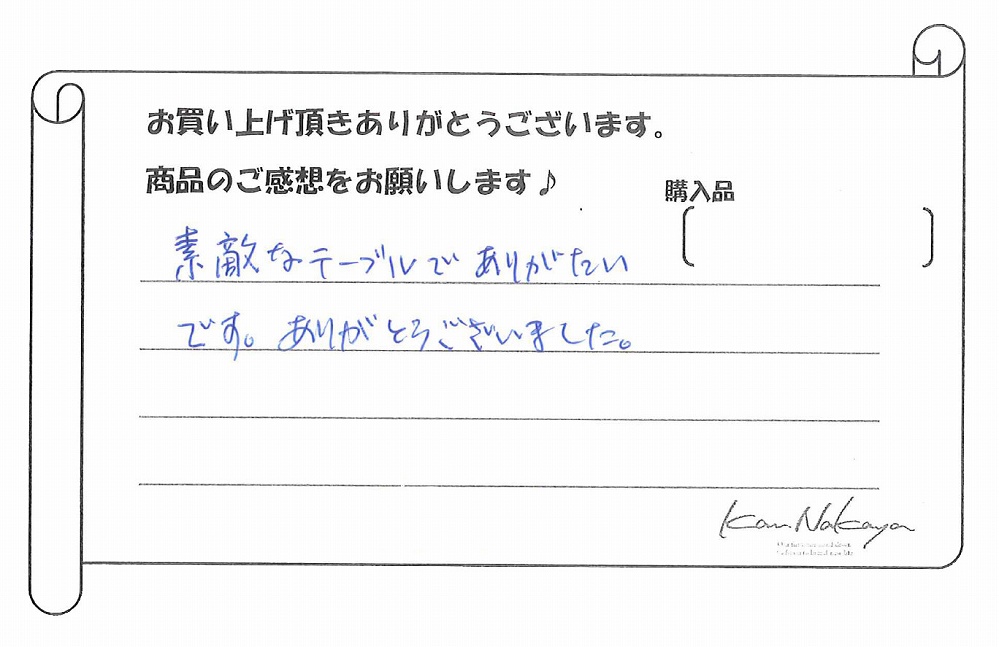 お買い上げ頂きありがとうございます。
商品のご感想をお願いします♪
購入品
素敵なテーブルでありがたい
です。ありがとうございました。
Kan Nakaya